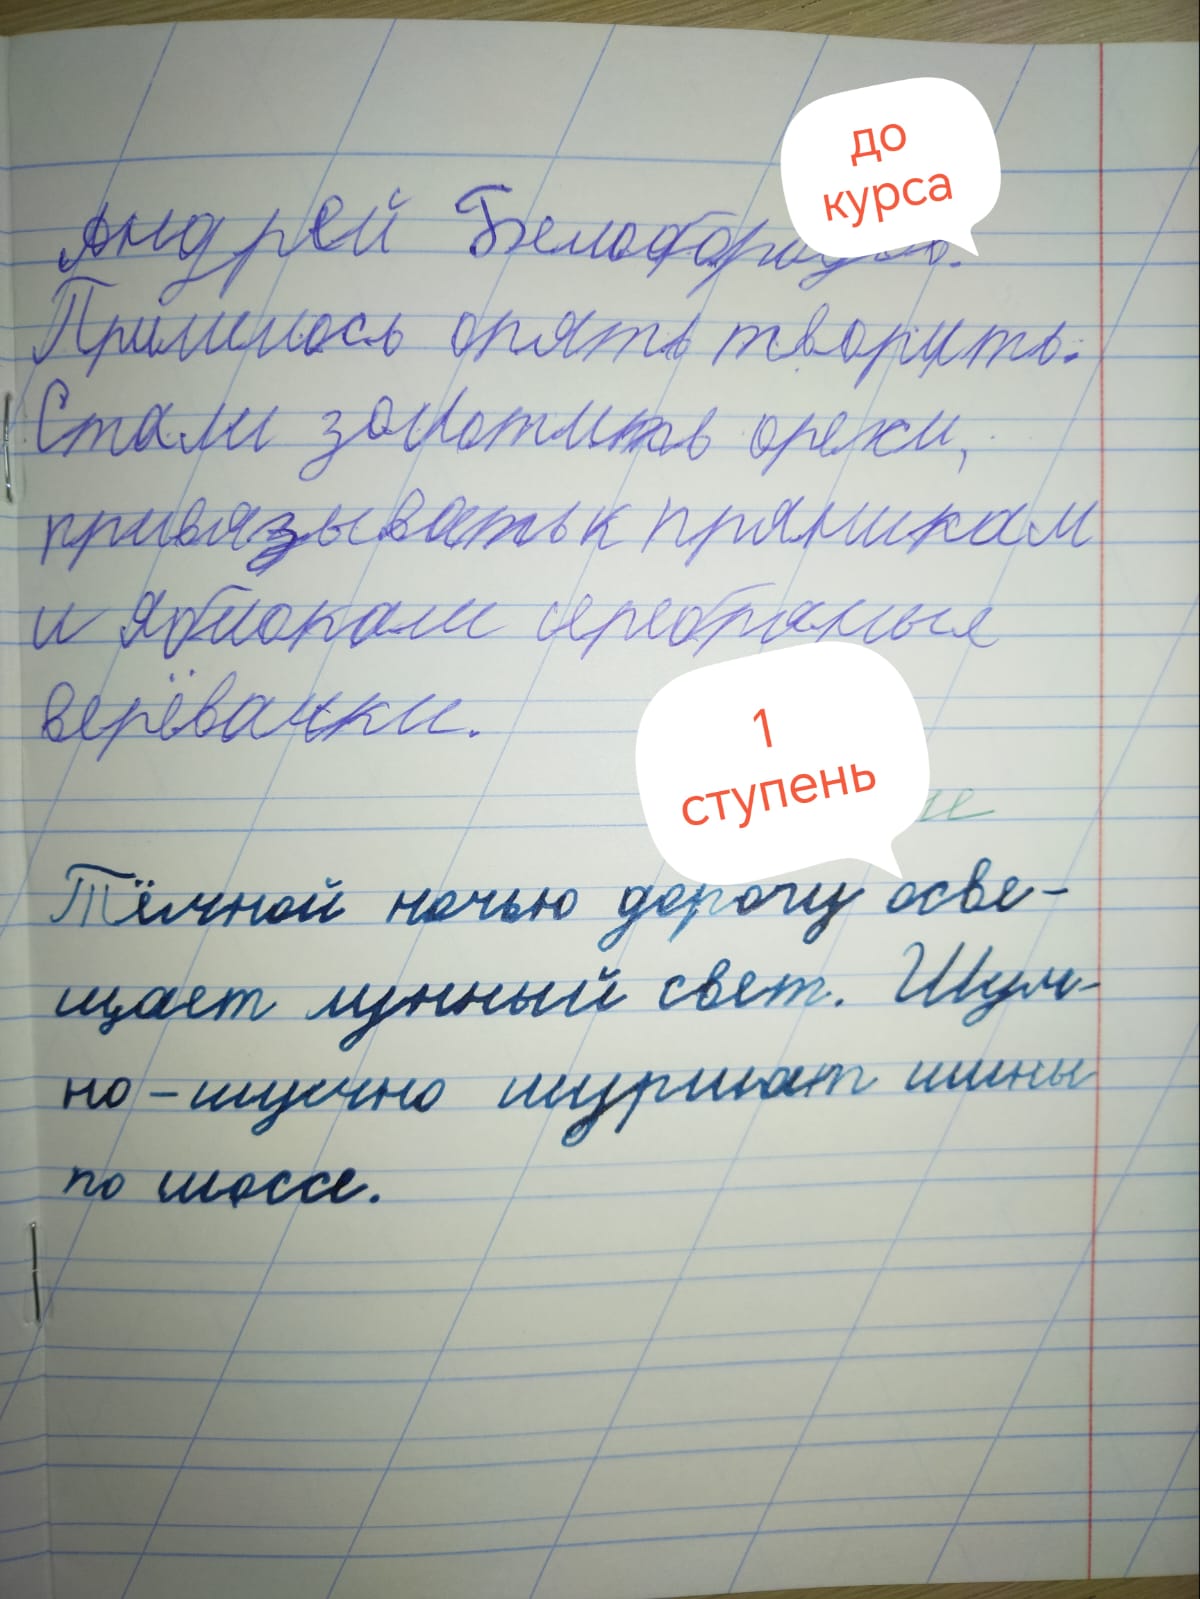 до
курса
Андрей
Пришлось опять творить.
Стали золотить орехи,
привязывать к пряникам
и яблокам серебряные
верёвачки.
1
ступень
Тёмной ночью дорогу осве-
щает лунный свет. Шум-
но-шумно шуршат шины
по шоссе.